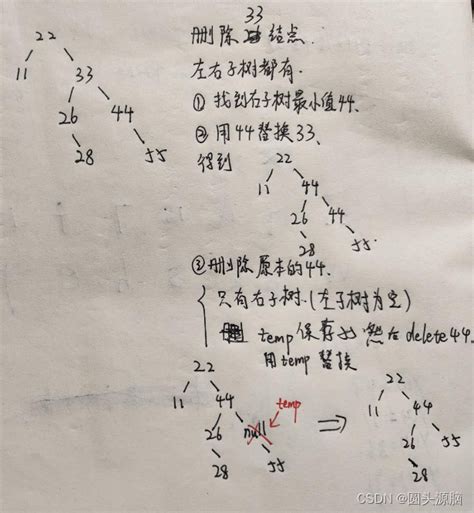 33
删除 结点.
左右子树都有.
① 找到右子树最小值44.
② 用44替换33.
得到
22
11 33
26 44
28 55
22
11 44
26 44
28 55
③ 删除原本的44.
只有右子树.(左子树为空)
temp保存55 然后delete44.
用temp替换
22
11 44
temp
26 null
28 55
⇒
22
11 44
26 55
28
CSDN @圆头源脑